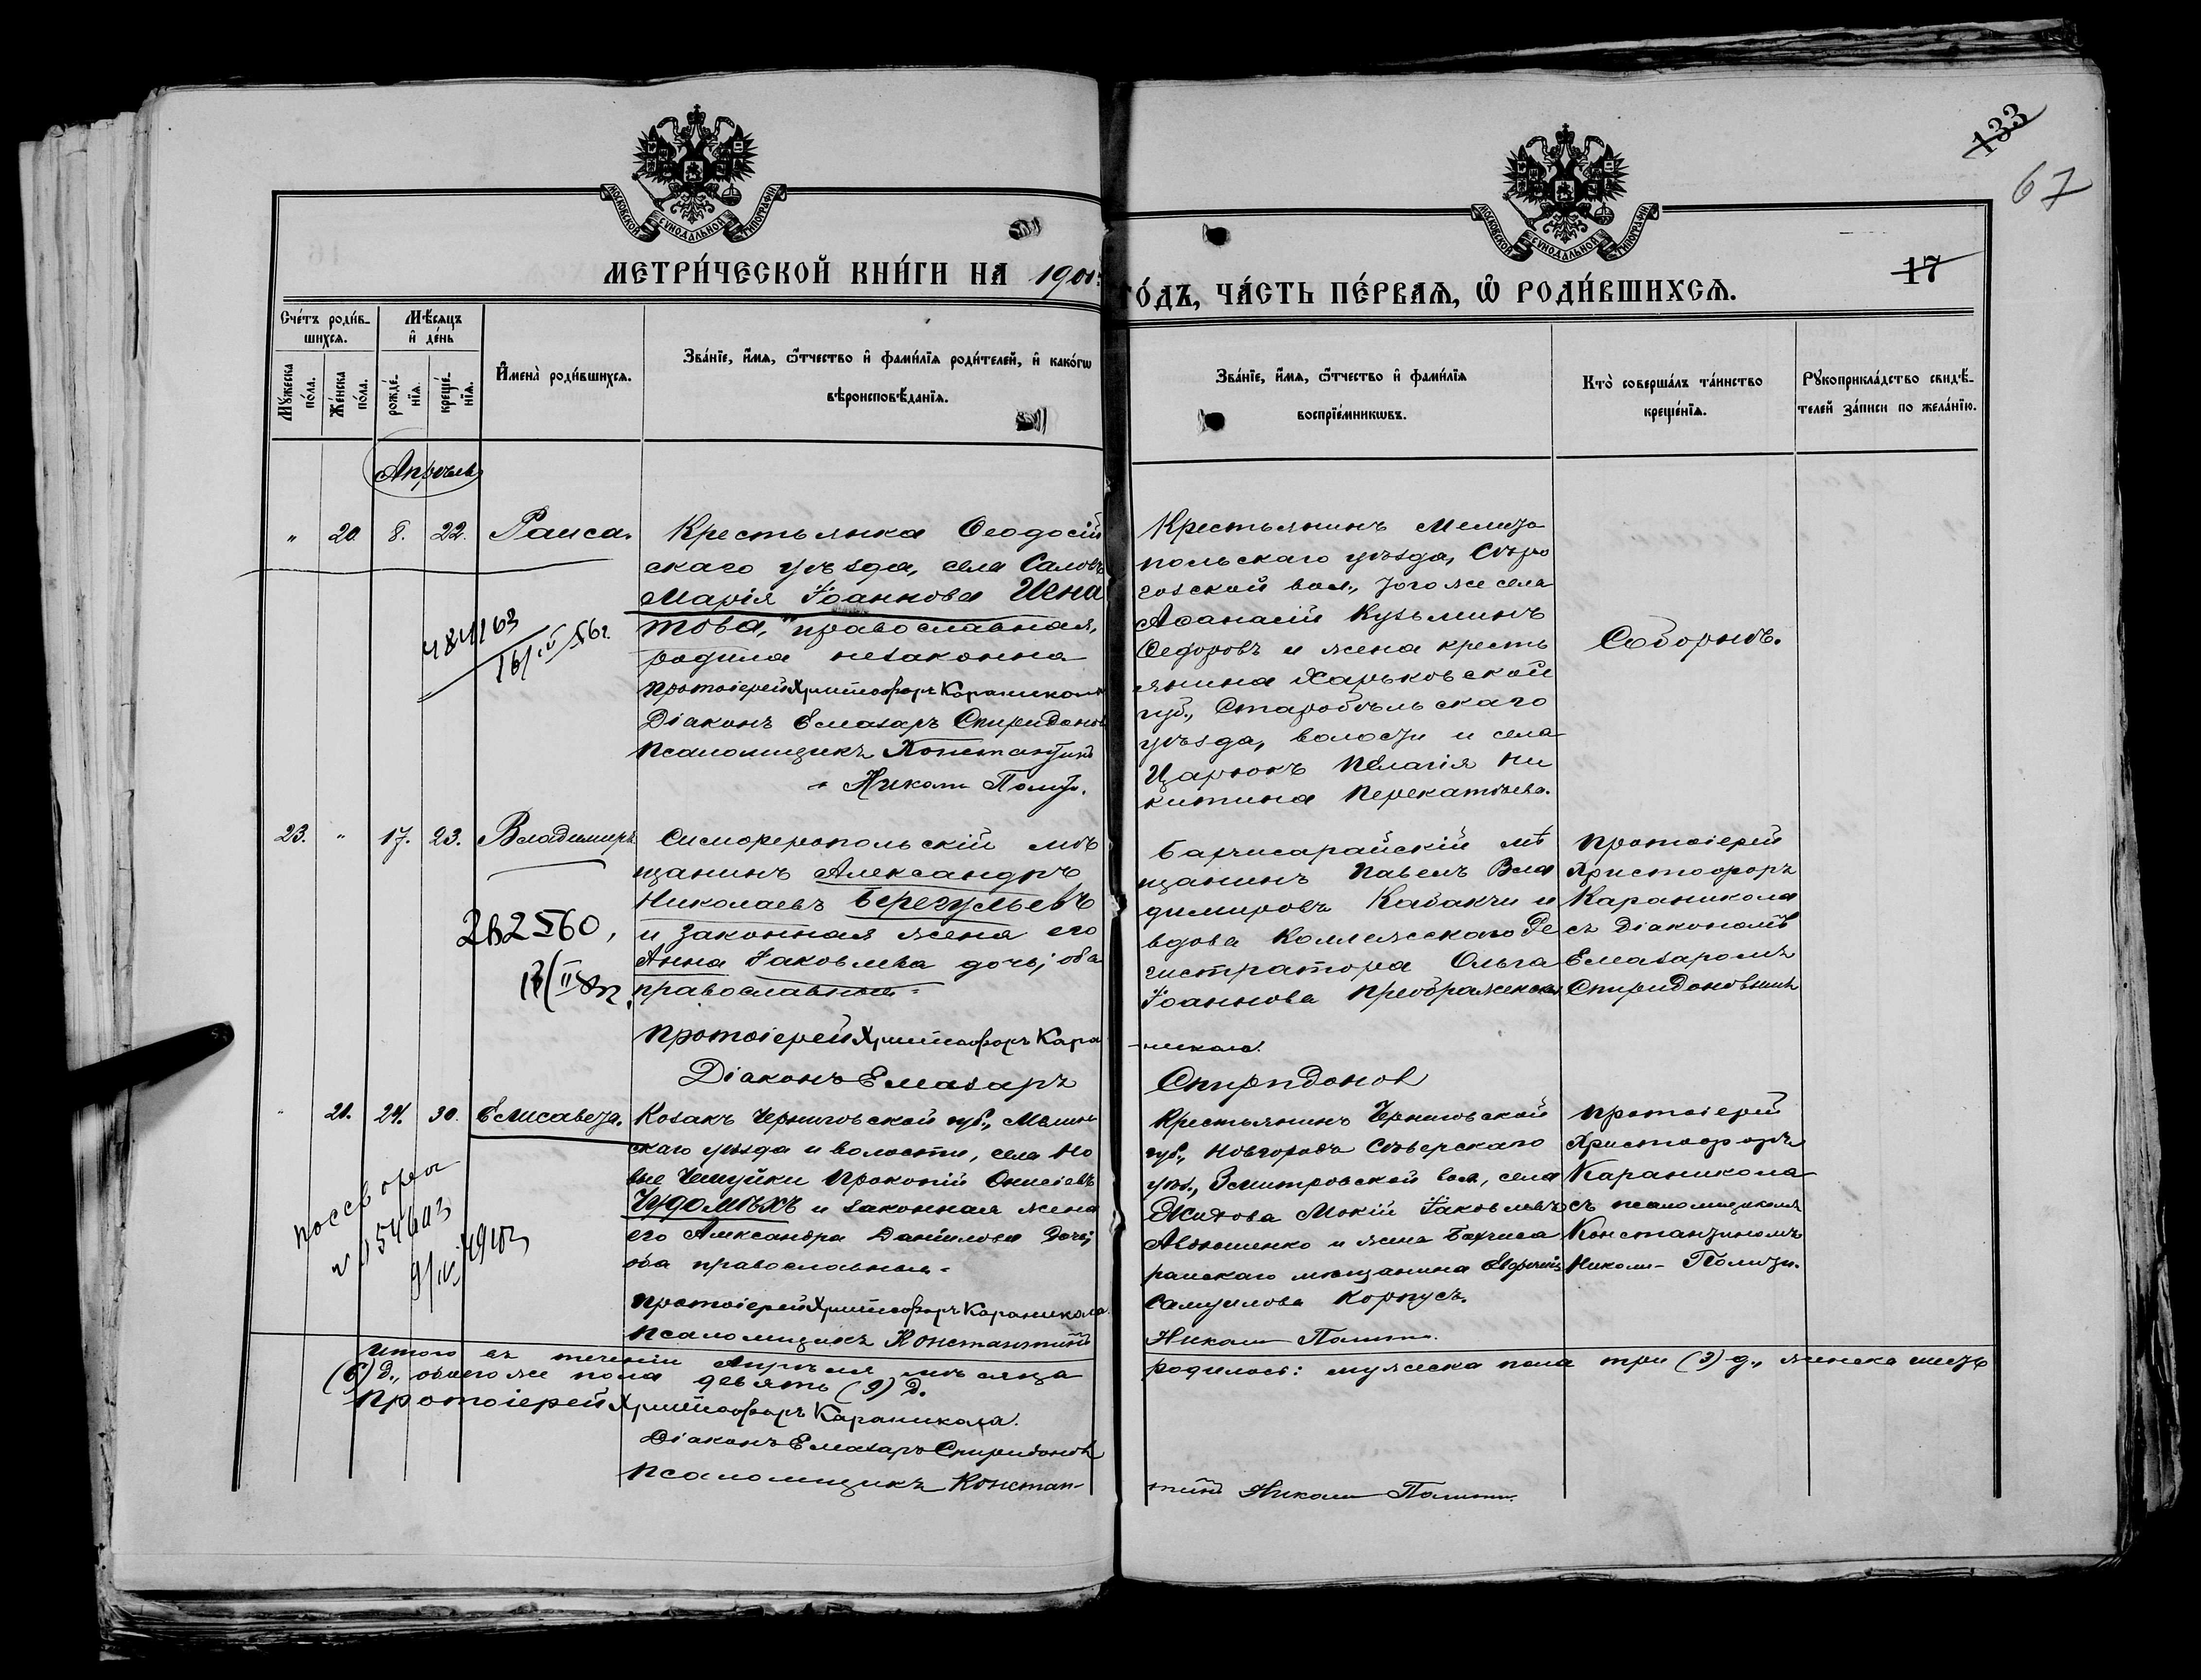 133
67
17
МОСКОВСКОЙ СУНОДАЛЬНОЙ ТИПОГРАФІИ
МОСКОВСКОЙ СУНОДАЛЬНОЙ ТИПОГРАФІИ
МЕТРИ́ЧЕСКОЙ КНИ́ГИ НА 1901
ГО́ДЪ, ЧА́СТЬ ПЕ́РВАѦ, Ѡ҆ РОДИ́ВШИХСѦ.
Счéтъ роди́в-
шихсѧ.
Мꙋжеска по́ла.
Же́нска по́ла.
Мѣ́сѧцъ
и҆ де́нь
рожде́-
нїѧ.
креще́-
нїѧ.
И҆мена̀ роди́вшихсѧ.
Зва́нїе, и҆́мѧ, ѻ҆́тчество и҆ фамѝлїѧ роди́телей, и҆ како́гѡ
вѣроисповѣ́данїѧ.
Зва́нїе, и҆́мѧ, ѻ҆́тчество и҆ фамѝлїѧ
воспрїе́мникѡвъ.
Кто̀ соверша́лъ та́инство
креще́нїѧ.
Рꙋкоприкла́дство свидѣ́-
телей за́писи по жела́нїю.
Апрѣль
" 20 8. 22. Раиса.
Крестьянка Ѳеодосій
скаго уѣзда, села Салы
Марія Іоаннова Игна
това, православная,
родила незаконна
Протоіерей Христофоръ Караникола
Діаконъ Елеазаръ Спиридонов
Псаломщикъ Константинъ
Николи Полити.
Крестьянинъ Мелито
польскаго уѣзда, Сѣро
гозской вол., того же села
Аѳанасій Кузьминъ
Ѳедоровъ и жена кресть
янина Харьковской
губ., Старобѣльскаго
уѣзда, волости и села
Пелагія Ни
китина
Соборнѣ.
23. " 17. 23. Владимиръ
Симферопольскій мѣ
щанинъ Александръ
Николаевъ
и законная жена его
Анна Іаковлева дочь; оба
православные.
Протоіерей Христофоръ Кара
никола.
Діаконъ Елеазаръ
Спиридонов
Бахчисарайскій мѣ
щанинъ Павелъ Вла
димировъ Кабакчи и
вдова Коллежскаго Ре
гистратора Ольга
Іоаннова Преображенская
Протоіерей
Христофоръ
Караникола
съ діакономъ
Елеазаромъ
Спиридоновымъ
" 21. 24. 30. Елисавета.
Козакъ Черниговской губ., Мглин
скаго уѣзда и волости, села Но
вые Чешуйки Прокопій Онисіевъ
и законная жена
его Александра Даніилова дочь;
оба православные.
Протоіерей Христофоръ Караникола.
Псаломщикъ Константинъ
Николи Полити.
Крестьянинъ Черниговской
губ., Новгородъ Сѣверскаго
уѣз., вол., села
Мокій Іаковлевъ
Авдошенко и жена Бахчиса
райскаго мѣщанина
Самуилова Корпусъ.
Протоіерей
Христофоръ
Караникола
съ псаломщикомъ
Константиномъ
Николи-Полити.
Итого въ теченіи Апрѣля мѣсяца
родилось: мужеска пола три (3) д., женска шесть
(6) д., обоего же пола девять (9) д.
Протоіерей Христофоръ Караникола.
Діаконъ Елеазаръ Спиридонов
Псаломщикъ Констан-
тинъ Николи Полити.